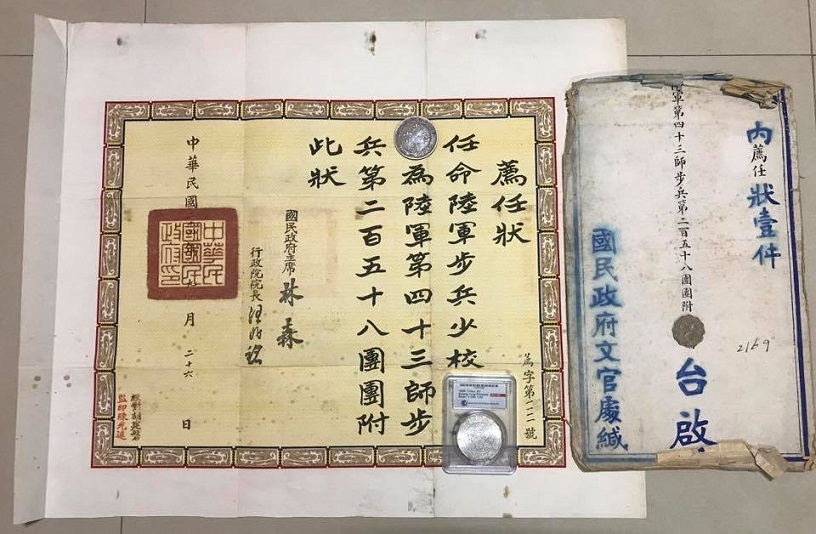 薦任狀
任命陸軍步兵少校
為陸軍第四十三師步
兵第二百五十八團團附
此狀
國民政府主席 林森
行政院院長 汪兆銘
中華民國
月
二十六
日
薦字第一二一號
監印陳光遠
內薦任狀壹件
陸軍第四十三師步兵第二百五十八團團附
台啟
國民政府文官處緘
2169